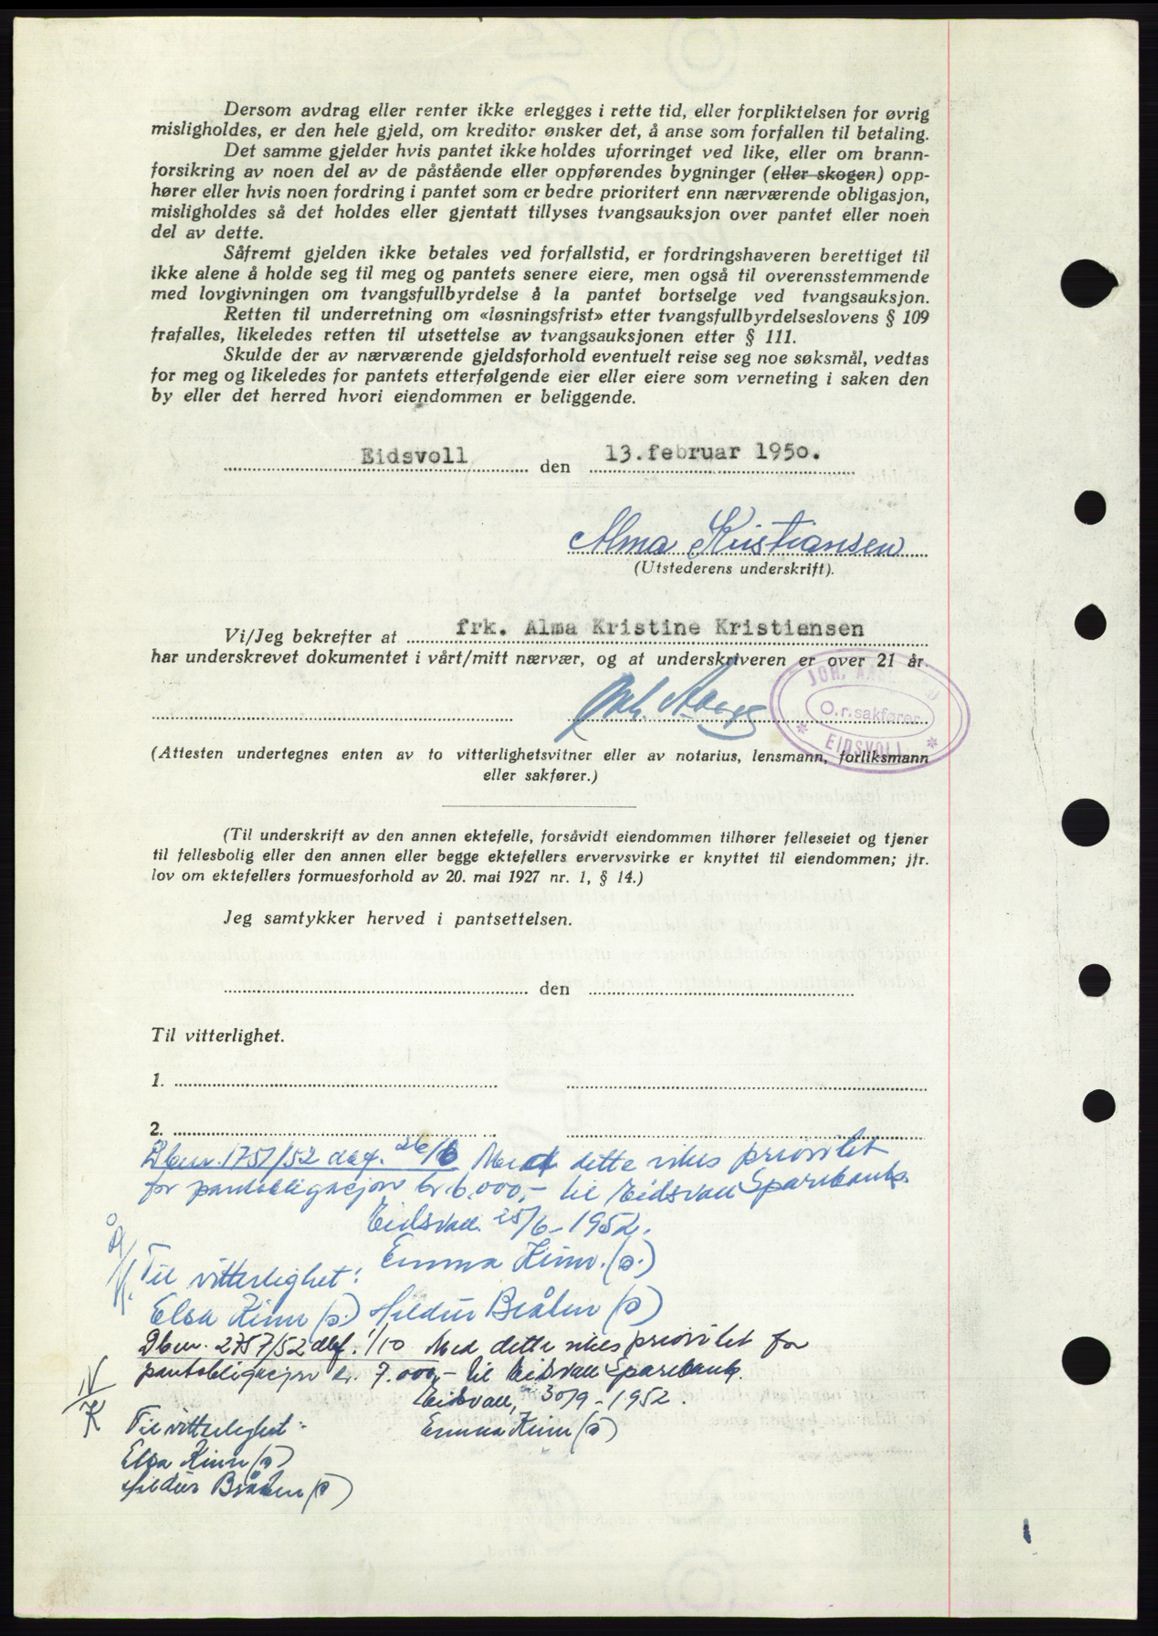 Dersom avdrag eller renter ikke erlegges i rette tid, eller forpliktelsen for øvrig
misligholdes, er den hele gjeld, om kreditor ønsker det, å anse som forfallen til betaling.
Det samme gjelder hvis pantet ikke holdes uforringet ved like, eller om brann-
forsikring av noen del av de påstående eller oppførendes bygninger (eller skogen) opp-
hører eller hvis noen fordring i pantet som er bedre prioritert enn nærværende obligasjon,
misligholdes så det holdes eller gjentatt tillyses tvangsauksjon over pantet eller noen
del av dette.
Såfremt gjelden ikke betales ved forfallstid, er fordringshaveren berettiget til
ikke alene å holde seg til meg og pantets senere eiere, men også til overensstemmende
med lovgivningen om tvangsfullbyrdelse å la pantet bortselge ved tvangsauksjon.
Retten til underretning om «løsningsfrist» etter tvangsfullbyrdelseslovens § 109
frafalles, likeledes retten til utsettelse av tvangsauksjonen etter § 111.
Skulde der av nærværende gjeldsforhold eventuelt reise seg noe søksmål, vedtas
for meg og likeledes for pantets etterfølgende eier eller eiere som verneting i saken den
by eller det herred hvori eiendommen er beliggende.
Eidsvoll den 13.februar 1950.
Alma Kristiansen
(Utstederens underskrift).
Vi/Jeg bekrefter at frk. Alma Kristine Kristiansen
har underskrevet dokumentet i vårt/mitt nærvær, og at underskriveren er over 21 år.
JOH.
O.r.sakfører
EIDSVOLL
(Attesten undertegnes enten av to vitterlighetsvitner eller av notarius, lensmann, forliksmann
eller sakfører.)
(Til underskrift av den annen ektefelle, forsåvidt eiendommen tilhører felleseiet og tjener
til fellesbolig eller den annen eller begge ektefellers ervervsvirke er knyttet til eiendommen; jfr.
lov om ektefellers formuesforhold av 20. mai 1927 nr. 1, § 14.)
Jeg samtykker herved i pantsettelsen.
den
Til vitterlighet.
1.
2.
Dbnr. 1757/52 dagf. 26/6 Med dette vikes prioritet
for pantobligasjon kr 6.000,- til Eidsvall Sparebank.
Eidsvall 25/6-1952.
Emma Kinn. (s.)
Til vitterlighet:
Elsa Kinn (s.) Hildur Bråten (s)
Dbnr. 2757/52 dagf. 1/10 Med dette vikes prioritet for
pantobligasjon kr. 7.000,- til Eidsvall Sparebank.
Eidsvall, 30/9-1952.
Til vitterlighet: Emma Kinn (s)
Elsa Kinn (s)
Hildur Bråten (s)